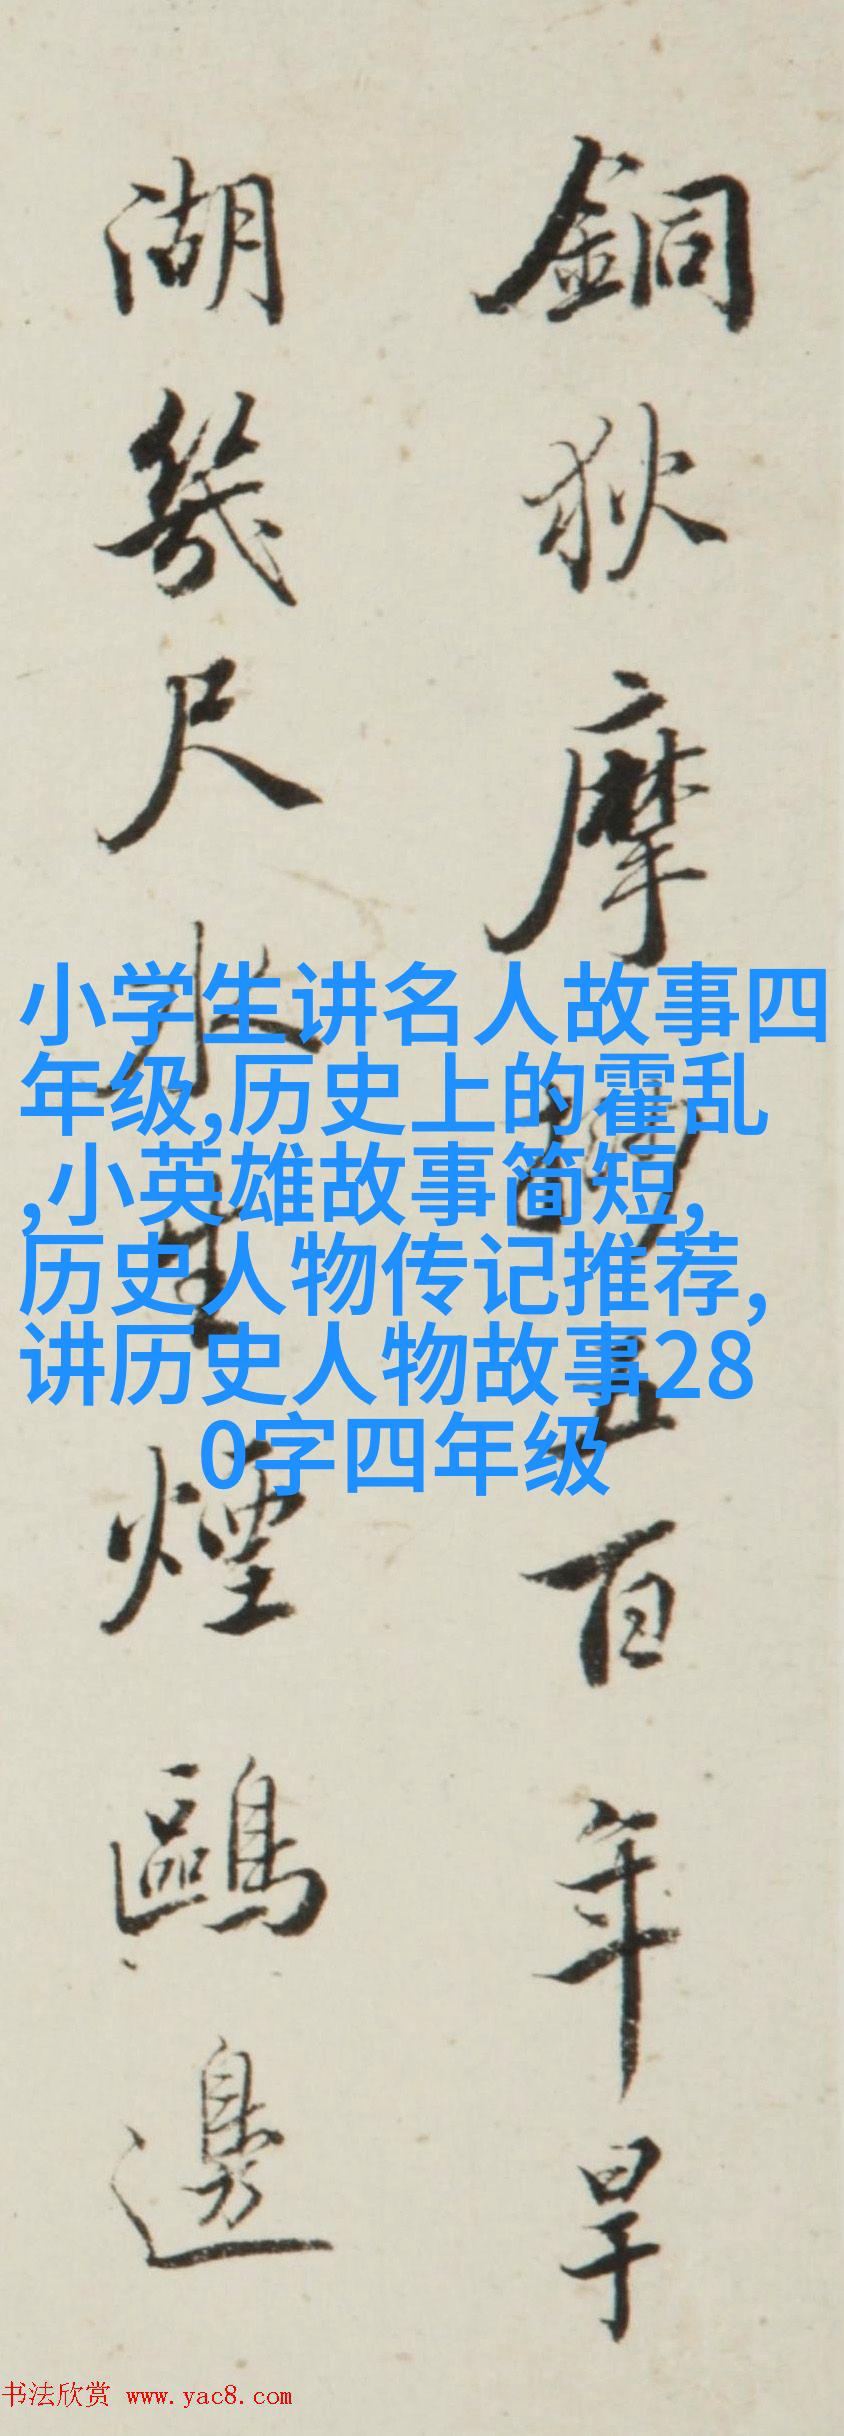 銅狄摩五百年旱
湖幾尺水生煙鷗邊
小学生讲名人故事四
年级,历史上的霍乱
,小英雄故事简短,
历史人物传记推荐,
讲历史人物故事28
0字四年级
书法欣赏 www.yac8.com